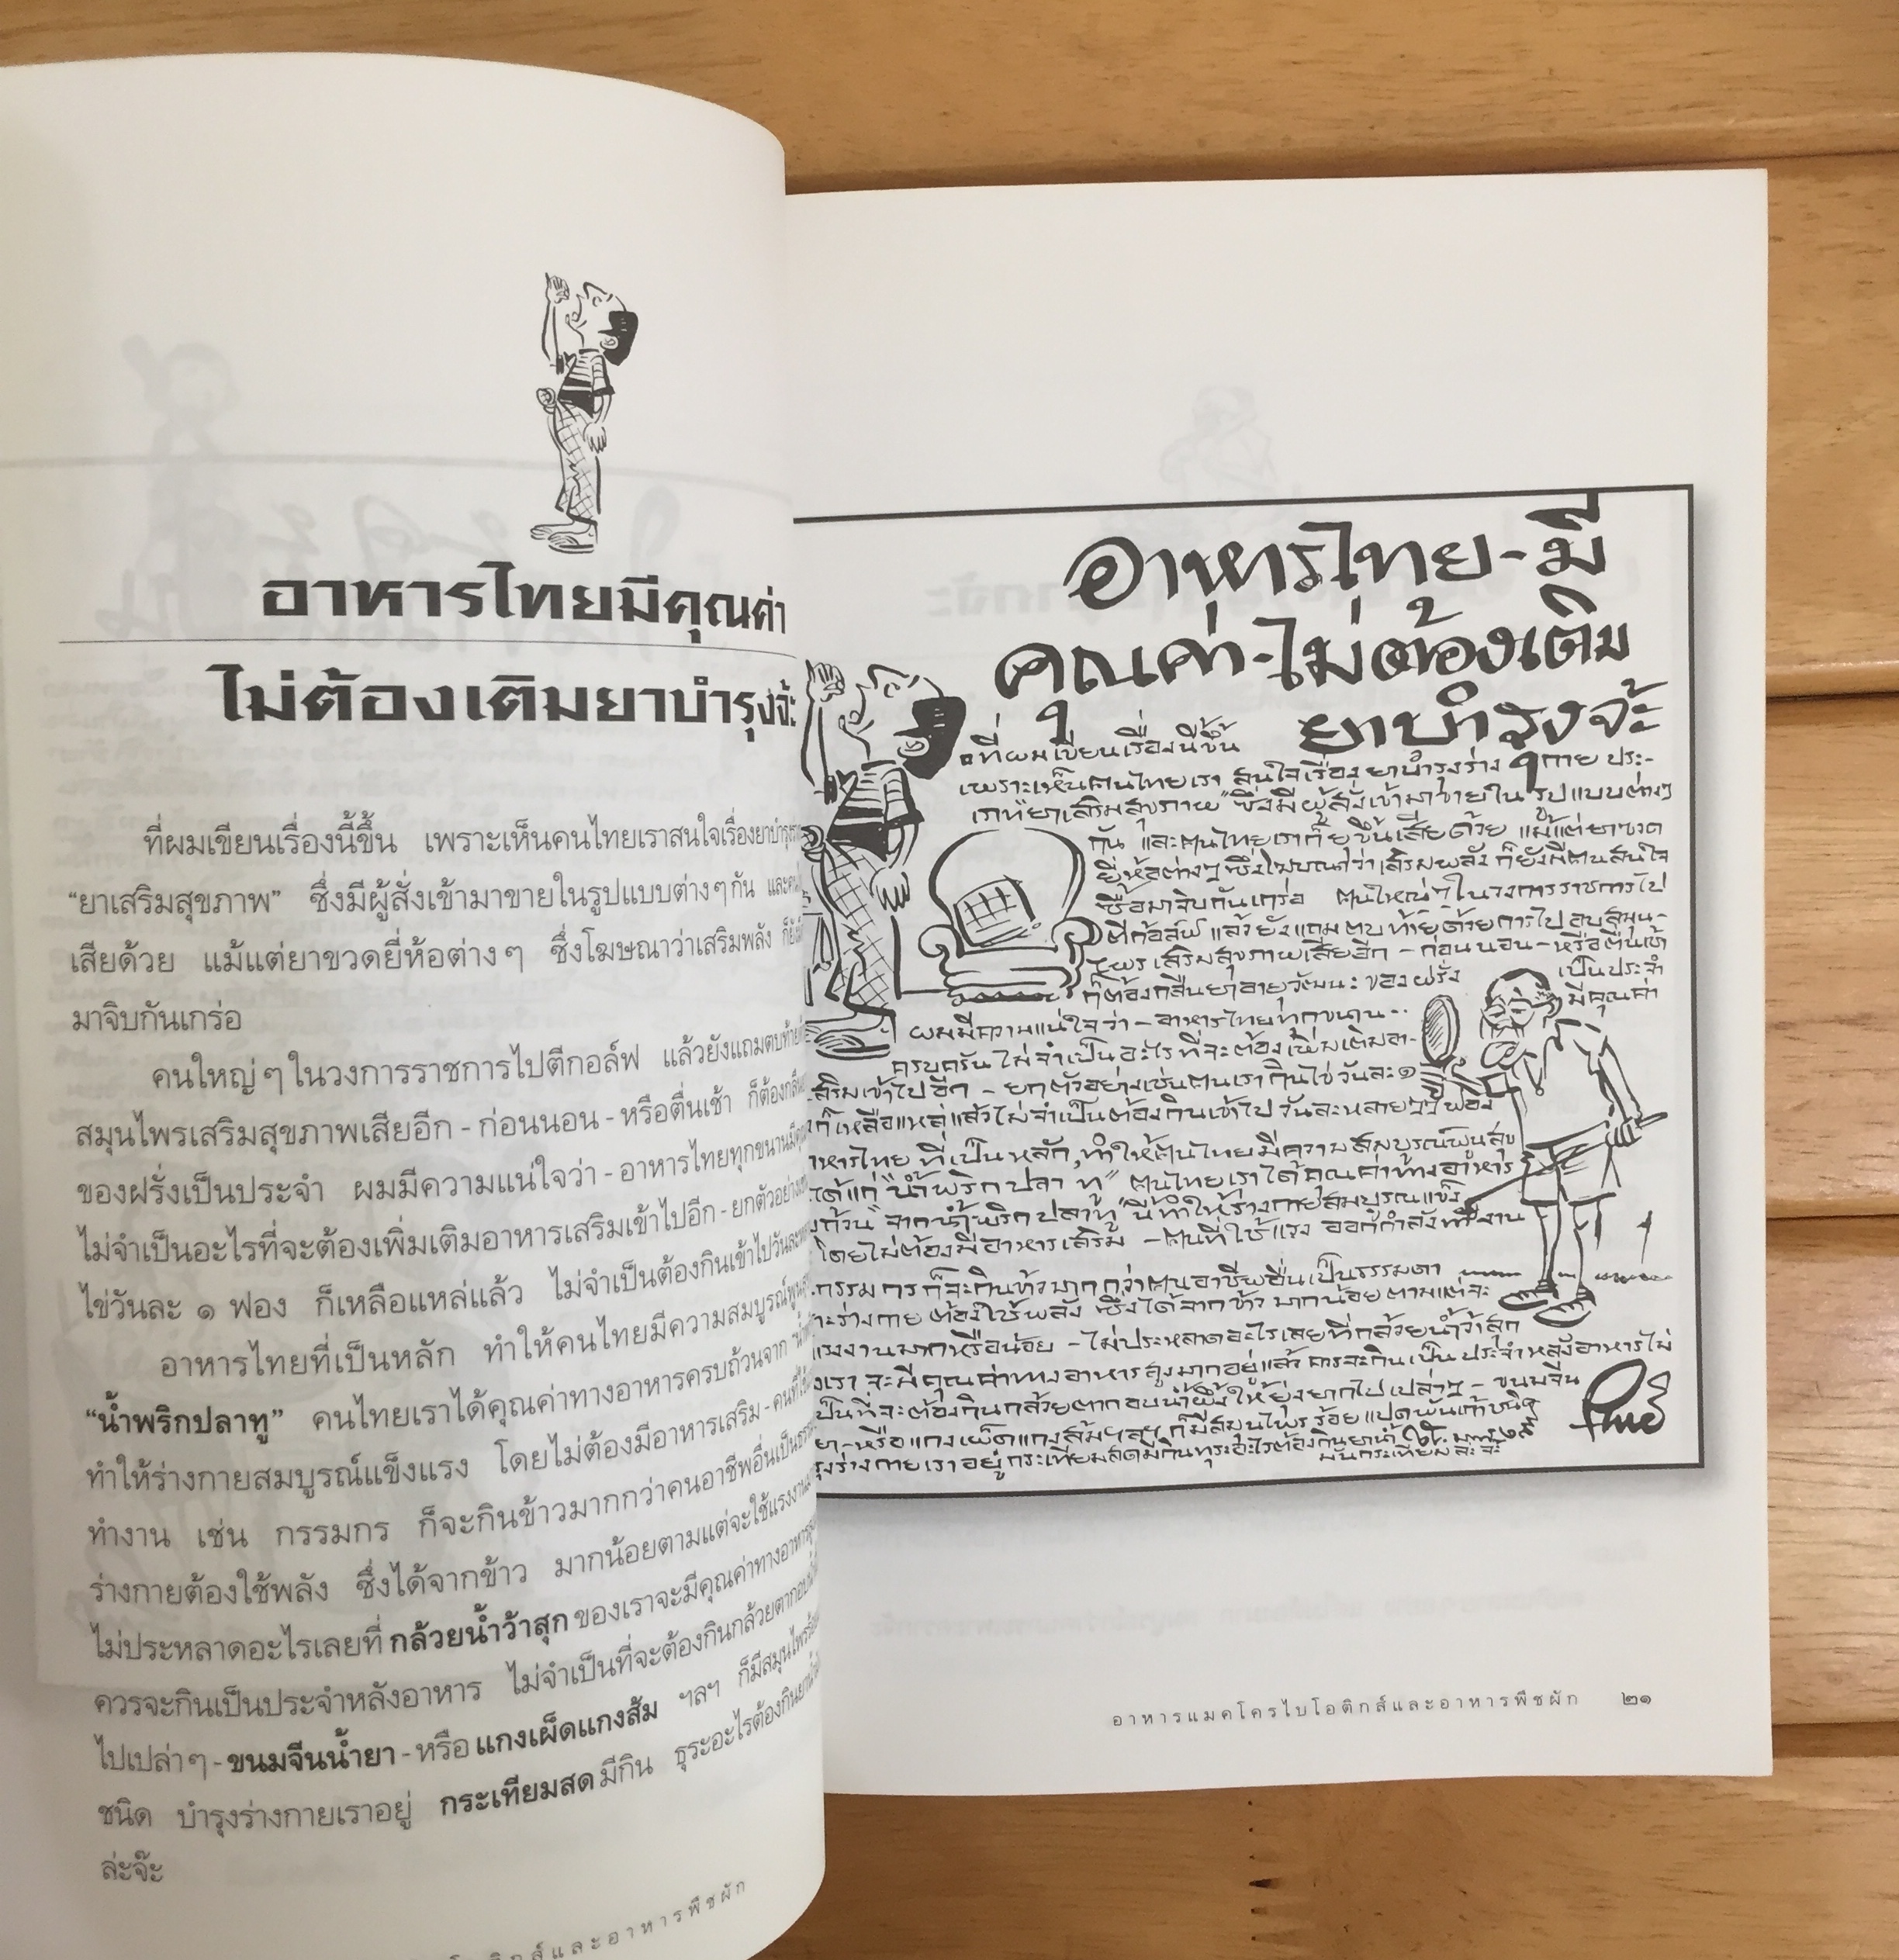 อาหารไทยมีคุณค่า
ไม่ต้องเติมยาบำรุงจ้ะ
ที่ผมเขียนเรื่องนี้ขึ้น เพราะเห็นคนไทยเราสนใจเรื่องยาบำรุง
“ยาเสริมสุขภาพ” ซึ่งมีผู้สั่งเข้ามาขายในรูปแบบต่างๆกัน และ
เสียด้วย แม้แต่ยาขวดยี่ห้อต่างๆ ซึ่งโฆษณาว่าเสริมพลัง
มาจิบกันเกร่อ
คนใหญ่ๆในวงการราชการไปตีกอล์ฟ แล้วยังแถมตบท้าย
สมุนไพรเสริมสุขภาพเสียอีก - ก่อนนอน - หรือตื่นเช้า ก็ต้องกลืน
ของฝรั่งเป็นประจำ ผมมีความแน่ใจว่า - อาหารไทยทุกขนาน
ไม่จำเป็นอะไรที่จะต้องเพิ่มเติมอาหารเสริมเข้าไปอีก - ยกตัวอย่าง
ไข่วันละ ๑ ฟอง ก็เหลือแหล่แล้ว ไม่จำเป็นต้องกินเข้าไปวันละ
อาหารไทยที่เป็นหลัก ทำให้คนไทยมีความสมบูรณ์
“น้ำพริกปลาทู” คนไทยเราได้คุณค่าทางอาหารครบถ้วนจาก
ทำให้ร่างกายสมบูรณ์แข็งแรง โดยไม่ต้องมีอาหารเสริม - คนที่ใช้
ทำงาน เช่น กรรมกร ก็จะกินข้าวมากกว่าคนอาชีพอื่นเป็น
ร่างกายต้องใช้พลัง ซึ่งได้จากข้าว มากน้อยตามแต่จะใช้แรงงาน
ไม่ประหลาดอะไรเลยที่ กล้วยน้ำว้าสุก ของเราจะมีคุณค่าทางอาหาร
ควรจะกินเป็นประจำหลังอาหาร ไม่จำเป็นที่จะต้องกินกล้วยตาก
ไปเปล่าๆ - ขนมจีนน้ำยา - หรือ แกงเผ็ดแกงส้ม ฯลฯ ก็มีสมุนไพร
ชนิด บำรุงร่างกายเราอยู่ กระเทียมสด มีกิน ธุระอะไรต้องกิน
ล่ะจ๊ะ
ติกส์และอาหารพืชผัก
อาหารไทย-มี
คุณค่า-ไม่ต้องเติม
ยาบำรุงจ้ะ
ที่ผมเขียนเรื่องนี้ขึ้น
เพราะเห็นคนไทยเรา สนใจเรื่องยาบำรุงร่างกาย ประ-
เภท “ยาเสริมสุขภาพ” ซึ่งมีผู้สั่งเข้ามาขายในรูปแบบต่างๆ
กัน และคนไทยเราก็ยุขึ้นเสียด้วย แม้แต่ยาขวด
ยี่ห้อต่างๆ ซึ่งโฆษณาว่าเสริมพลัง ก็ยังมีคนสนใจ
ซื้อมาจิบกันเกร่อ คนใหญ่ๆ ในวงการราชการไป
ตีก๊อล์ฟ แล้วยังแถมตบท้ายด้วยการไปอบสมุน-
ไพร เสริมสุขภาพเสียอีก - ก่อนนอน - หรือตื่นเช้า
ก็ต้องกลืนยาอายุวัฒนะ ของฝรั่ง เป็นประจำ
ผมมีความแน่ใจว่า - อาหารไทยทุกขนาน.. มีคุณค่า
ครบครัน ไม่จำเป็นอะไรที่จะต้องเพิ่มเติมอา-
เสริมเข้าไปอีก - ยกตัวอย่างเช่นคนเรากินไข่วันละ ๑
ก็เหลือแหล่แล้วไม่จำเป็นต้องกินเข้าไปวันละหลายๆ ฟอง
หารไทย ที่เป็นหลัก, ทำให้คนไทยมีความสมบูรณ์พูนสุข
ได้แก่ “น้ำพริกปลาทู” คนไทยเราได้คุณค่าทางอาหาร
ถ้วน จาก “น้ำพริกปลาทู” นี้ทำให้ร่างกายสมบูรณแข็ง
โดยไม่ต้องมีอาหารเสริม - คนที่ใช้แรง ออกกำลังทำงาน
กรรมกร ก็จะกินข้าวมากกว่าคนอาชีพอื่นเป็นธรรมดา
ร่างกายต้องใช้พลัง ซึ่งได้จากข้าว มากน้อยตามแต่จะ
แรงงานมากหรือน้อย - ไม่ประหลาดอะไรเลยที่กล้วยน้ำว้าสุก
เรา จะมีคุณค่าทางอาหารสูงมากอยู่แล้ว ควรจะกินเป็นประจำหลังอาหารไม่
เป็นที่จะต้องกินกล้วยตากอบน้ำผึ้งให้ยุ่งยากไปเปล่าๆ - ขนมจีน
ยา - หรือแกงเผ็ดแกงส้ม ฯลฯ ก็มีสมุนไพร ร้อยแปดพันเก้าชนิด
ร่างกายเราอยู่ กระเทียมสดมีกินธุระอะไรต้องกินยาน้ำ
มันกระเทียมล่ะจ๊ะ
อาหารแมคโครไบโอติกส์และอาหารพืชผัก ๒๑